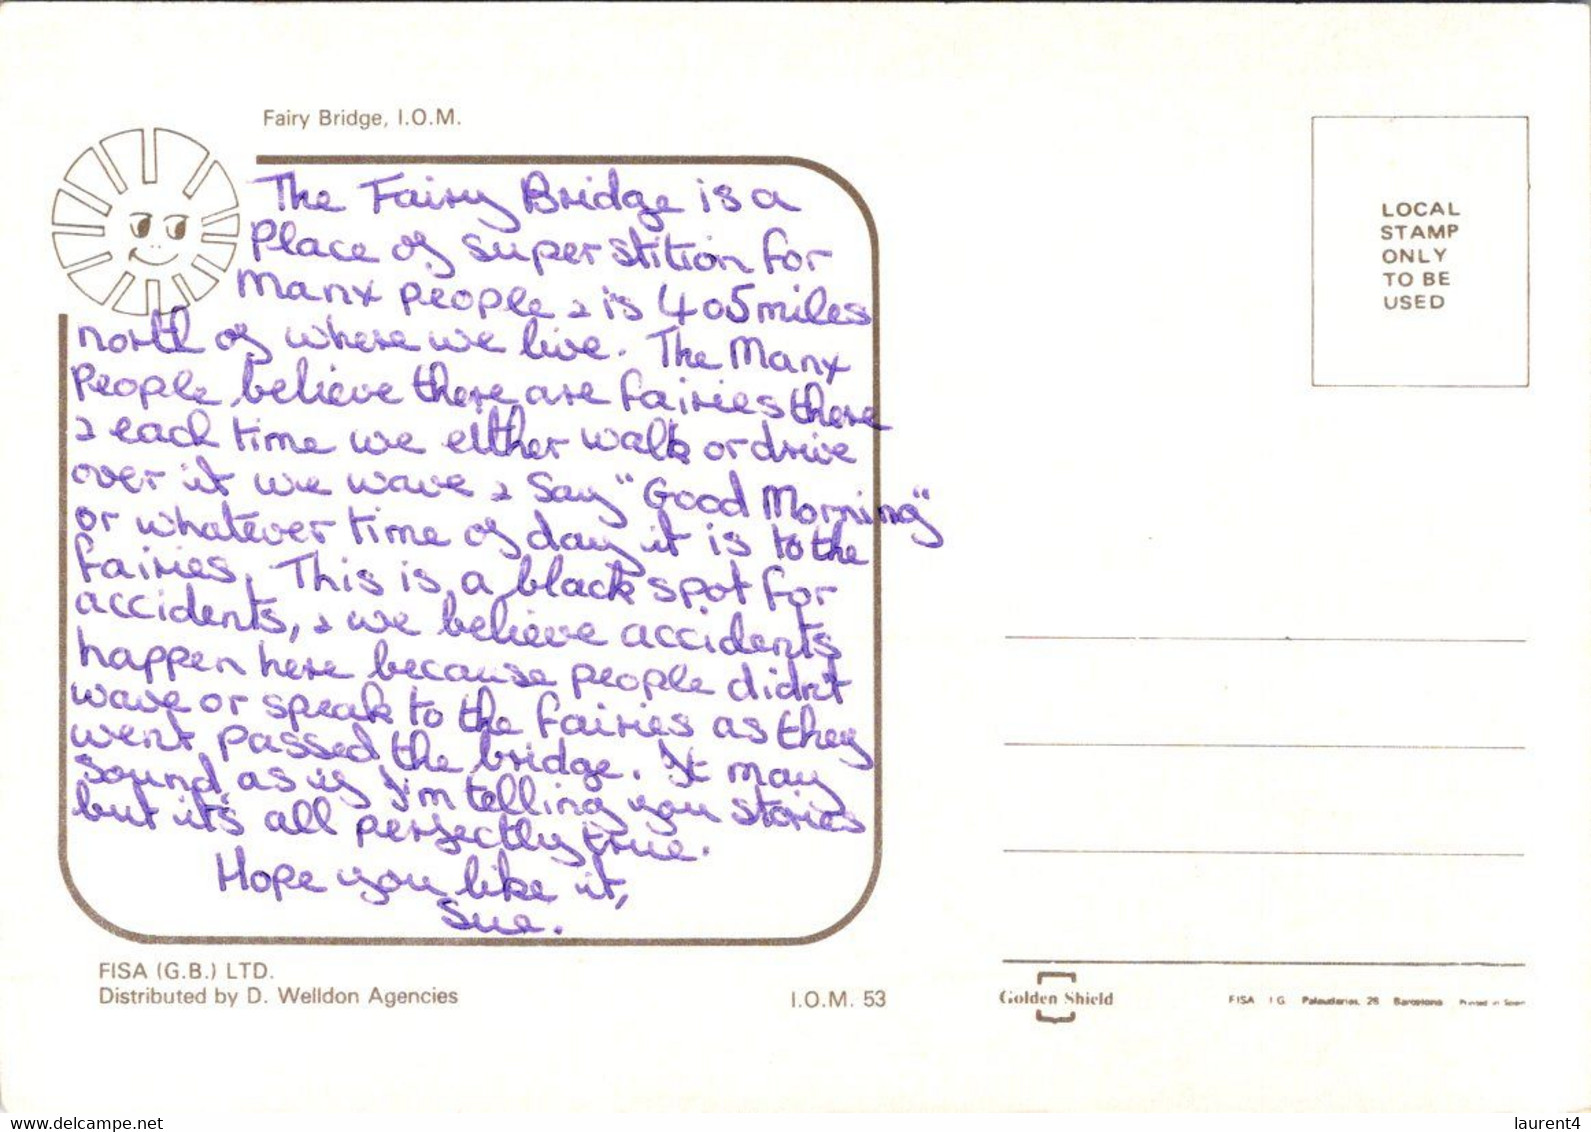 Fairy Bridge, I.O.M.
The Fairy Bridge is a
Place of superstition for
Manx people & is 4 or 5 miles
north of where we live. The Manx
People believe there are fairies there
& each time we either walk or drive
over it we wave & say "Good Morning"
or whatever time of day it is to the
fairies. This is a black spot for
accidents, & we believe accidents
happen here because people didn't
wave or speak to the fairies as they
went passed the bridge. It may
sound as if I'm telling you stories
but it's all perfectly true.
Hope you like it,
Sue.
LOCAL
STAMP
ONLY
TO BE
USED
FISA (G.B.) LTD.
Distributed by D. Welldon Agencies
I.O.M. 53
Golden Shield
FISA I G Palaudarias, 26 Barcelona Printed in Spain
www.delcampe.net
laurent4